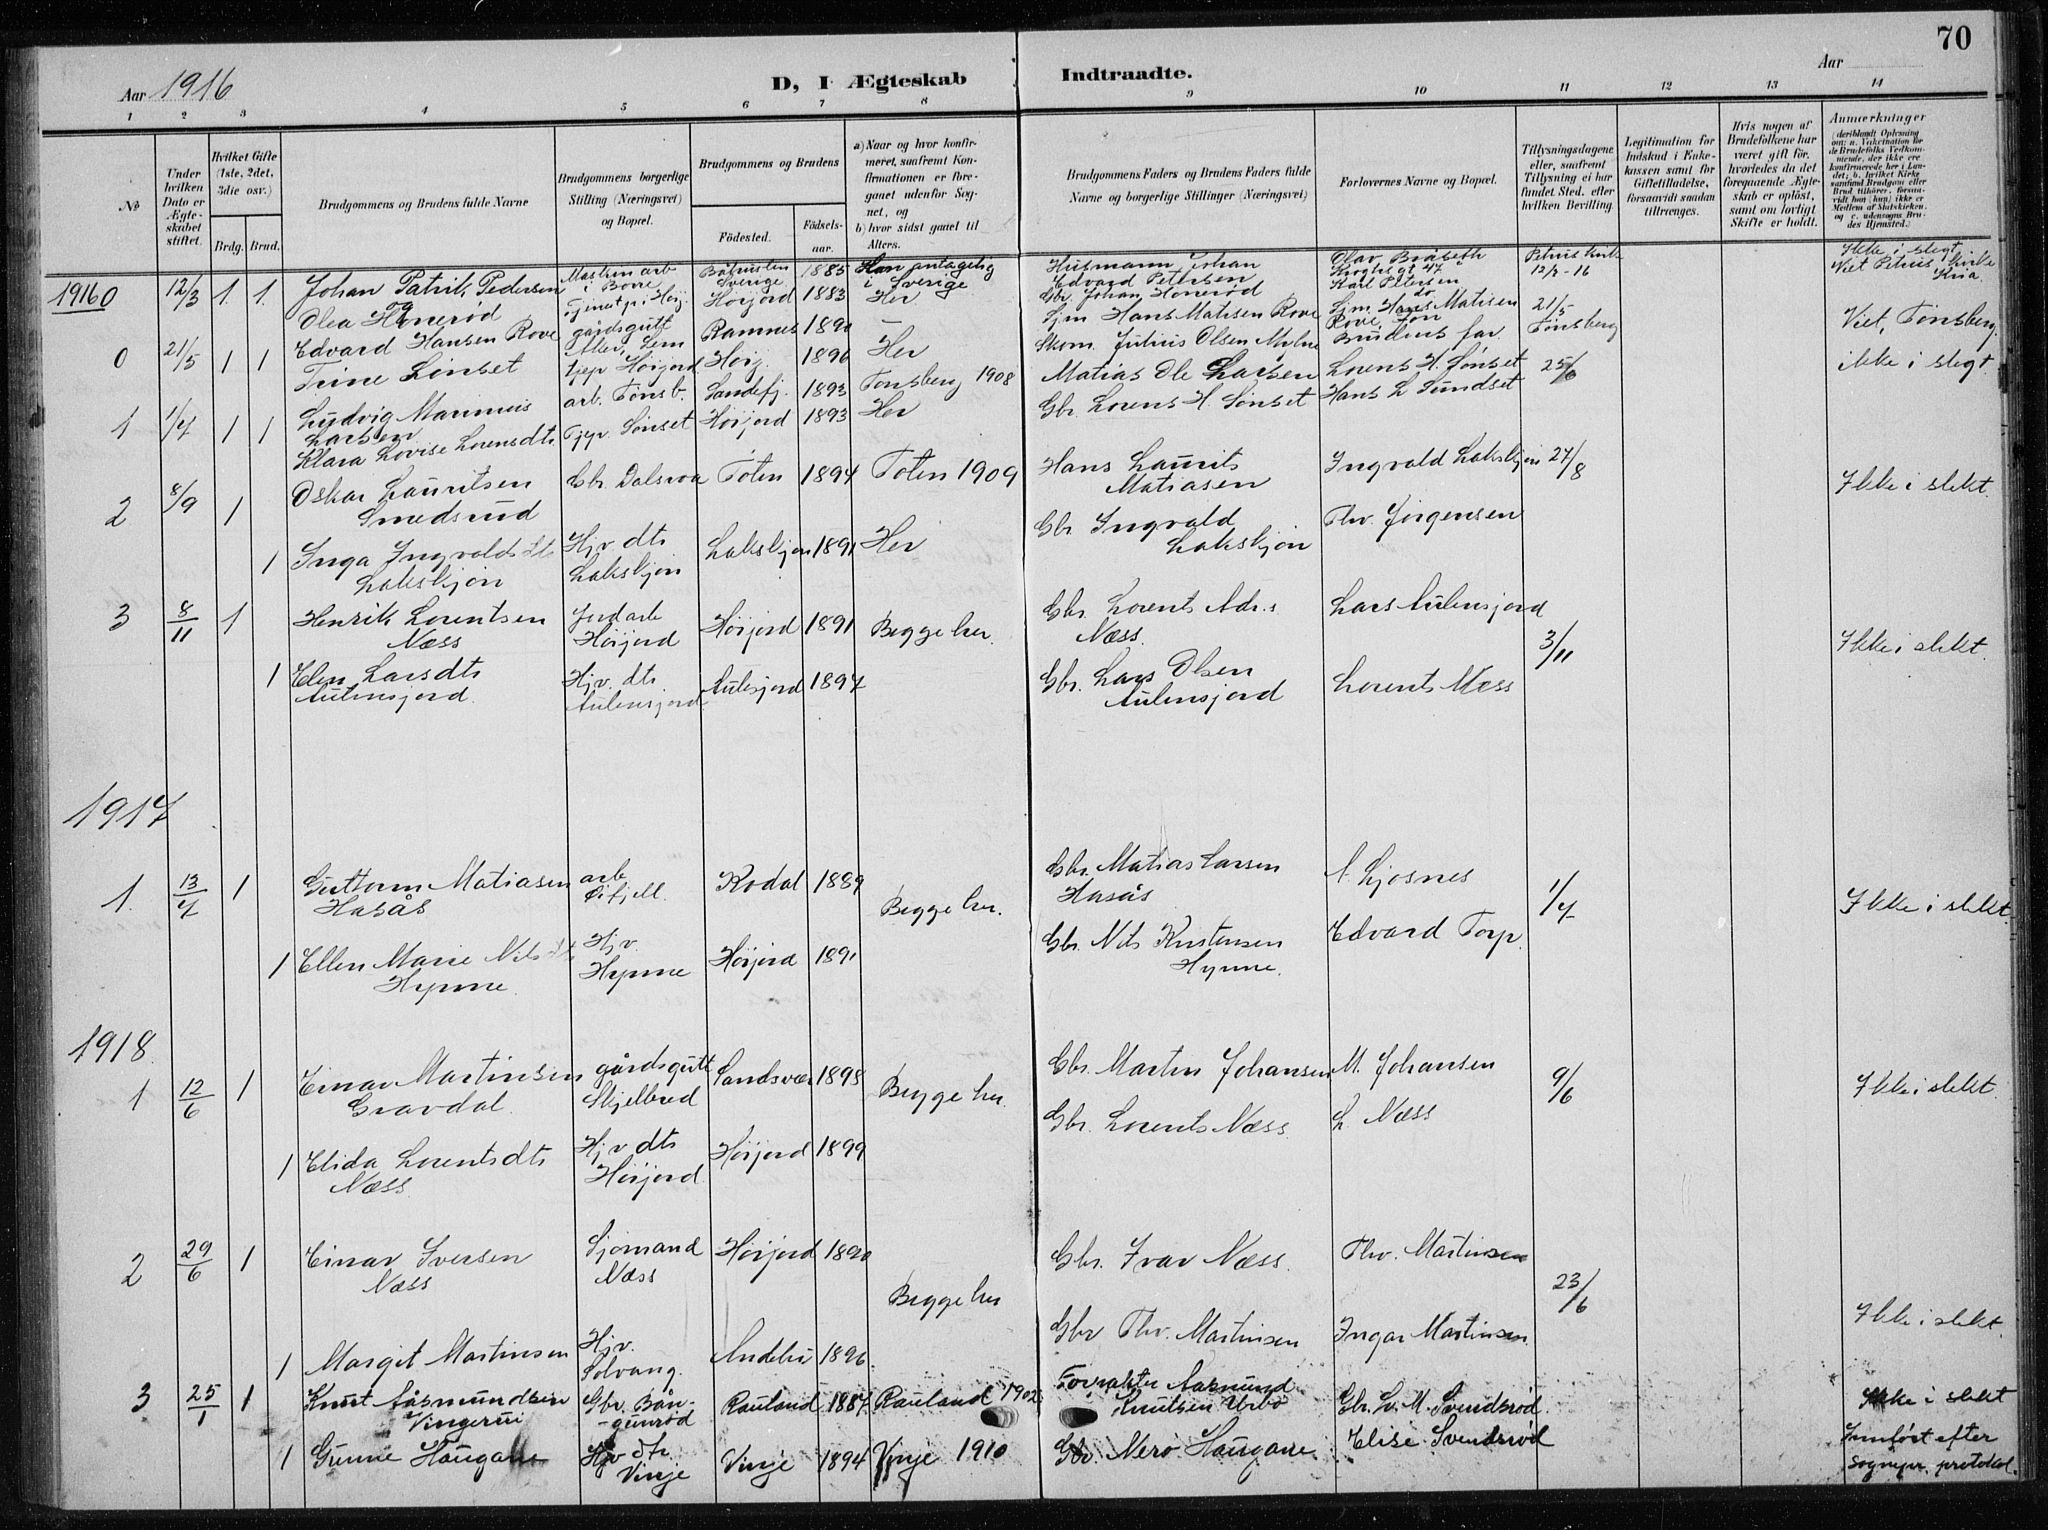 70
Aar 1916
D, I Ægteskab Indtraadte.
Aar
1 2 3 4 5 6 7 8 9 10 11 12 13 14
№
Under hvilken Dato er Ægteskabet stiftet.
Hvilket Gifte (1ste, 2det, 3die osv.)
Brdg. Brud.
Brudgommens og Brudens fulde Navne
Brudgommens borgerlige Stilling (Næringsvei) og Bopæl.
Brudgommens og Brudens
Fødested. Fødselsaar.
a) Naar og hvor konfirmeret, saafremt Konfirmationen er foregaaet udenfor Sognet, og
b) hvor sidst gaaet til Alters.
Brudgommens Faders og Brudens Faders fulde Navne og borgerlige Stillinger (Næringsvei)
Forlovernes Navne og Bopæl.
Tillysningsdagene eller, saafremt Tillysning ei har fundet Sted, efter hvilken Bevilling.
Legitimation for Indskud i Enkekassen samt for Giftetilladelse, forsaavidt saadan tiltrænges.
Hvis nogen af Brudefolkene har været gift før, hvorledes da det foregaaende Ægteskab er opløst, samt om lovligt Skifte er holdt.
Anmærkninger (deriblandt Oplysning om: a. Vakcination for de Brudefolks Vedkommende, der ikke ere konfirmerede her i Landet; b. hvilket Kirkesamfund Brudgom eller Brud tilhører, forsaavidt han (hun) ikke er Medlem af Statskirken, og c. udensogns Brudes Hjemsted.)
1916 0 12/3 1. 1. Johan Patrik Pedersen Maskinarb i Borre Båhuslen Sverige 1885 Han antagelig i Sverige Husmann Johan Edvard Petersen Olav Bråseth Kroghs gt 47 Petrus kirke 12/2-16 Ikke i slegt
Viet Petrus Kirke Kria.
og Olea Honerød Tjenestepi. Høij. Høijord 1883 Her Gbr. Johan Honerød Karl Petersen do
0 21/5 1 1 Edvard Hansen Rove gårdsgutt Aller, Sem Ramnes 1890 — Sjm Hans Matisen Rove Sjm. Hans Matisen Rove, Tøn 21/5 Tønsberg Viet, Tønsberg.
Trine Sønset tjep Høijord Høij. 1890 Her Skom. Julius Olsen Brudens far. ikke i slegt.
1 1/7 1 1 Ludvig Marinius Larsen arb. Tønsb. Sandefj. 1893 Tønsberg 1908 Matias Ole Larsen Lorens H. Sønset 25/6
Klara Lovise Lorensdtr Tjep. Sønset Høijord 1893 Her Gbr. Lorens H. Sønset Hans L Sundset
2 8/9 1 Oskar Lauritsen Smedsrud Gbr. Dalsroa Toten 1894 Toten 1909 Hans Laurits Matiasen Ingvald Lakskjøn 27/8 Ikke i slekt.
1 Inga Ingvaldsdtr Lakskjøn Hjv. dtr Lakskjøn Lakskjøn 1891 Her Gbr Ingvald Lakskjøn Thv. Jørgensen
3 8/11 1 Henrik Lorentsen Næss Jordarb Høijord Høijord 1891 Begge her. Gbr. Lorents Adr.s Næss. Lars Aulensjord 3/11 Ikke i slekt.
1 Elen Larsdtr Aulensjord Hjv. dtr Aulensjord Aulesjord 1897 Gbr. Lars Olsen Aulensjord Lorents Næss
1917
1. 13/7 1 Guttorm Matiasen Hasås arb Øifjell. Kodal 1889 Begge her. Gbr. Matias Larsen Hasås A. Ljosnes 1/7 Ikke i slekt.
1 Ellen Marie Nilsdtr Hynne Hjv. Hynne Høijord 1891 Gbr. Nils Kristensen Hynne. Edvard Torp.
1918.
1 12/6 1 Einar Martinsen Gravdal. gårdsgutt Skjelbred Sandsvær 1898 Begge her. Gbr. Martin Johansen M. Johansen 9/6 Ikke i slekt.
1 Elida Lorentsdtr Næss. Hjv dtr Høijord. Høijord 1899 Gbr. Lorents Næss. L. Næss
2 29/6 1 Einar Iversen Næss Sjømand Næss Høijord 1890 Begge her Gbr. Ivar Næss. Thv. Martinsen 23/6 Ikke i slekt.
1 Margit Martinsen Hjv. Solvang. Andebu 1896. Gbr Thv. Martinsen Ingar Martinsen
3 25/1 1 Knut Åsmundsen Vingerui Gbr. Bån-gunrød Rauland 1887 Rauland 1902 Forpakter Aasmund Knutsen Urbø Gbr. L. M. Svendsrød. Ikke i slekt
1 Gunne Haugann Hjv dtr Vinje Vinje 1894 Vinje 1910 Gbr. Haugann Elise Svendsrød Innført efter sognepr. protokol.